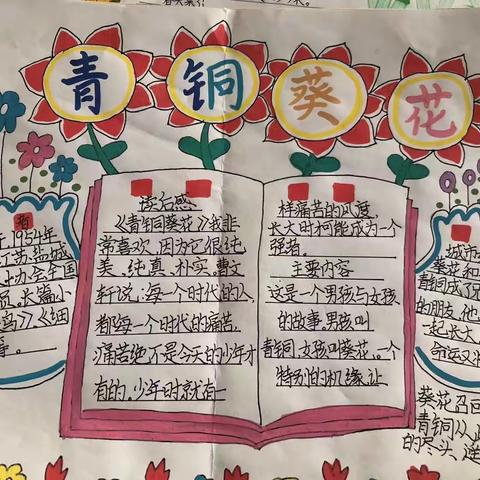 青铜葵花
读后感
《青铜葵花》我非
常喜欢,因为它很纯
美、纯真、朴实,曹文
轩说:每一个时代的人,
都每一个时代的痛苦,
痛苦绝不是今天的少年才
有的,少年时就有一
样痛苦的风度,
长大时才可能成为一个
强者。
主要内容
这是一个男孩与女孩
的故事,男孩叫
青铜,女孩叫葵花。一个
特别的机缘,让
者
1954年
江苏盐城
全国
员,长篇小
鸟》、《细
等。
城市
葵花和
青铜成了
的朋友,他
一起长大
命运又
葵花召回
青铜从
的尽头,遥